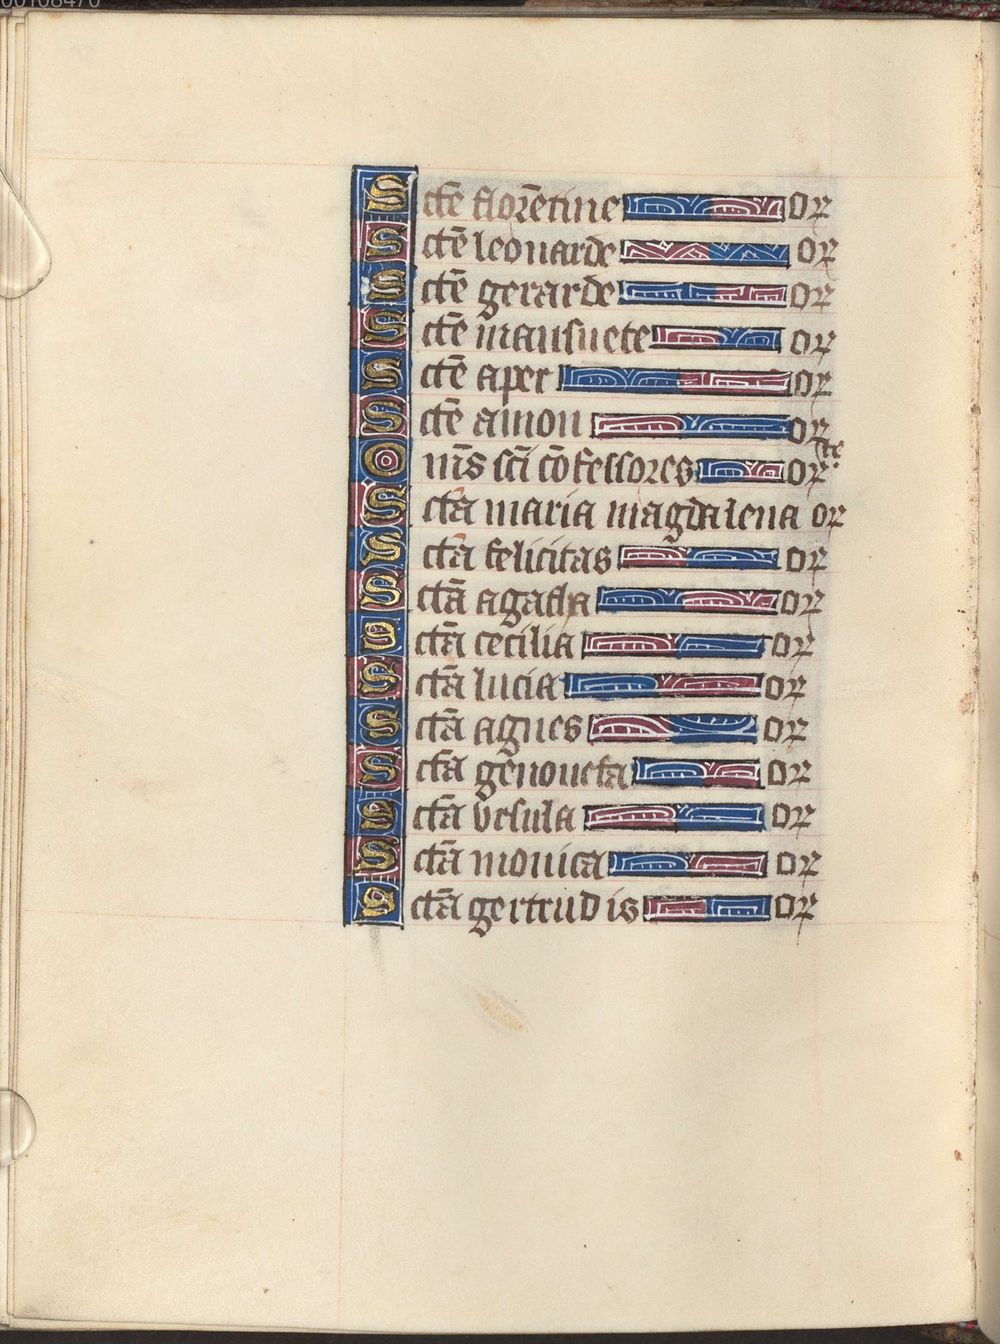 00108470
Sctē florētine or
Sctē leonarde or
Sctē gerarde or
Sctē mansuete or
Sctē aper or
Sctē amon or
Om̄s scī cōfessores orate
Scta maria magdalena or
Scta felicitas or
Sctā agatha or
Sctā cecilia or
Sctā lucia or
Sctā agnes or
Sctā genoueta or
Sctā vrsula or
Sctā monica or
Sctā gertrudis or